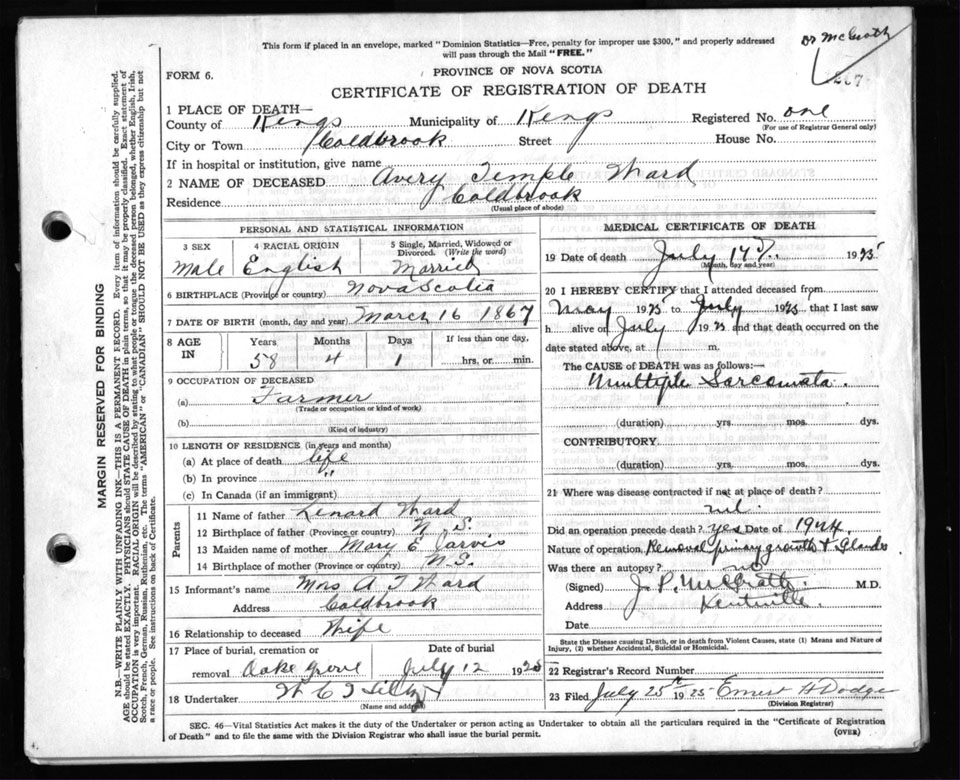 This form if placed in an envelope, marked "Dominion Statistics—Free, penalty for improper use $300," and properly addressed
will pass through the Mail "FREE."
Dr McGrath
267
FORM 6.
PROVINCE OF NOVA SCOTIA
CERTIFICATE OF REGISTRATION OF DEATH
1 PLACE OF DEATH—
County of Kings Municipality of Kings Registered No. one
(For use of Registrar General only)
City or Town Coldbrook Street House No.
If in hospital or institution, give name
2 NAME OF DECEASED Avery Temple Ward
Residence Coldbrook
(Usual place of abode)
PERSONAL AND STATISTICAL INFORMATION
3 SEX 4 RACIAL ORIGIN 5 Single, Married, Widowed or Divorced. (Write the word)
Male English Married
6 BIRTHPLACE (Province or country) Nova Scotia
7 DATE OF BIRTH (month, day and year) March 16 1867
8 AGE IN Years Months Days If less than one day,
58 4 1 hrs. or min.
9 OCCUPATION OF DECEASED
(a) Farmer
(Trade or occupation or kind of work)
(b)
(Kind of industry)
10 LENGTH OF RESIDENCE (in years and months)
(a) At place of death life
(b) In province "
(c) In Canada (if an immigrant)
Parents
11 Name of father Lenard Ward
12 Birthplace of father (Province or country) N. S.
13 Maiden name of mother Mary E Jarvis
14 Birthplace of mother (Province or country) N.S.
15 Informant's name Mrs A T Ward
Address Coldbrook
16 Relationship to deceased Wife
17 Place of burial, cremation or removal Date of burial
Oake Grove July 12 1925
18 Undertaker W C T
(Name and address)
MEDICAL CERTIFICATE OF DEATH
19 Date of death July 17 1925
(Month, day and year)
20 I HEREBY CERTIFY that I attended deceased from
May 1925 to July 1925 that I last saw
h alive on July 1925 and that death occurred on
date stated above, at m.
The CAUSE OF DEATH was as follows:—
Multiple Sarcomata.
(duration) yrs. mos. dys.
CONTRIBUTORY
(duration) yrs. mos. dys.
21 Where was disease contracted if not at place of death?
nil.
Did an operation precede death? yes Date of 1924
Nature of operation Removal primary growth & Glands
Was there an autopsy? no
(Signed) J. P. McGrath M.D.
Address Kentville.
Date
State the Disease causing Death, or in death from Violent Causes, state (1) Means and Nature of
Injury, (2) whether Accidental, Suicidal or Homicidal.
22 Registrar's Record Number
23 Filed July 25th 1925 Ernest H Dodge
(Division Registrar)
SEC. 46—Vital Statistics Act makes it the duty of the Undertaker or person acting as Undertaker to obtain all the particulars required in the "Certificate of Registration
of Death" and to file the same with the Division Registrar who shall issue the burial permit.
(OVER)
MARGIN RESERVED FOR BINDING
N.B.—WRITE PLAINLY WITH UNFADING INK—THIS IS A PERMANENT RECORD. Every item of information should be carefully supplied.
AGE should be stated EXACTLY. PHYSICIANS should STATE CAUSE OF DEATH in plain terms, so that it may be properly classified. Exact statement of
OCCUPATION is very important. RACIAL ORIGIN will be described by stating to what people or tongue the deceased person belonged, whether English, Irish,
Scotch, French, German, Russian, Ruthenian, etc. The terms "AMERICAN" or "CANADIAN" SHOULD NOT BE USED as they express citizenship but not
a race or people. See instructions on back of Certificate.